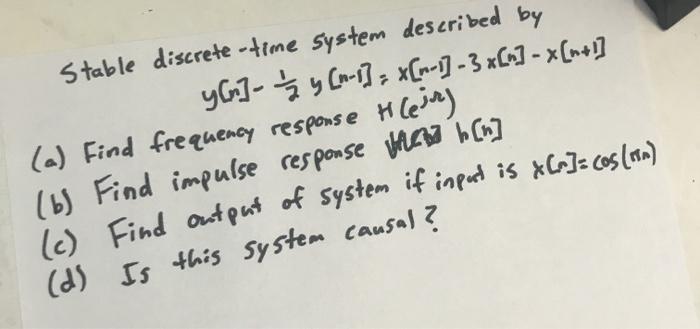 Stable discrete-time system described by
y[n] - 1/2 y[n-1] = x[n-1] - 3x[n] - x[n+1]
(a) Find frequency response H(e^jΩ)
(b) Find impulse response h[n]
(c) Find output of system if input is x[n] = cos(πn)
(d) Is this system causal?